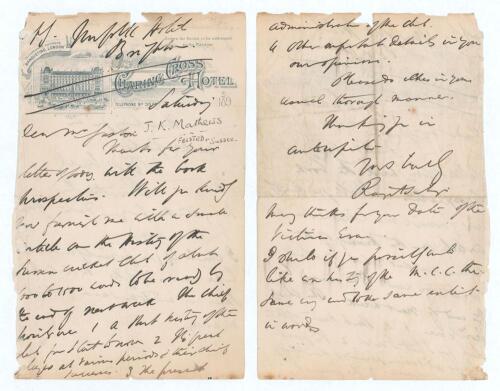 Norfolk Hotel
Brighton
CHARING CROSS
HOTEL
Saturday 189
Dear Mr Gaston J. K. Mathews
FELSTED & SUSSEX
Thanks for your
letter of today with the book
prospectus. Will you kindly
now furnish me with a small
article on the history of the
Sussex cricket club of about
words to be ready by
the end of next week. The chief
1 A short history of the
club from start to now 2
at various periods & their chief
3 the present
administration of the club.
4 Other important details in your
own opinion.
Please do it in your
usual thorough manner.
Thanking you in
anticipation
Yours truly
Many thanks for your date of the
Victorian Era.
I should if you possibly could
like an history of the M.C.C. the
same way and to the same extent
in words